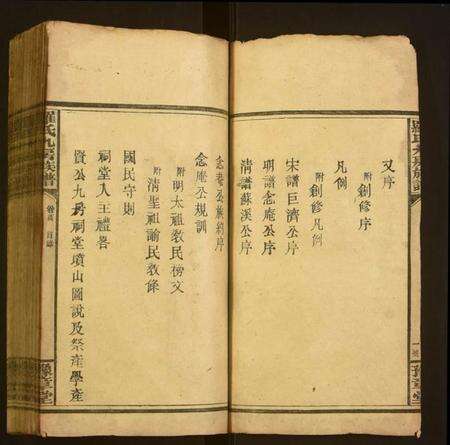 又序
附創修序
凡例
附創修凡例
宋譜巨濟公序
明譜念庵公序
清譜蘇溪公序
念庵公族約序
念庵公規訓
附明太祖教民榜文
附清聖祖諭民教條
國民守則
祠堂人主禮畧
賢公九房祠堂墳山圖說及祭產學產
羅氏九房族譜
卷首 目錄
豫章堂
豫章堂